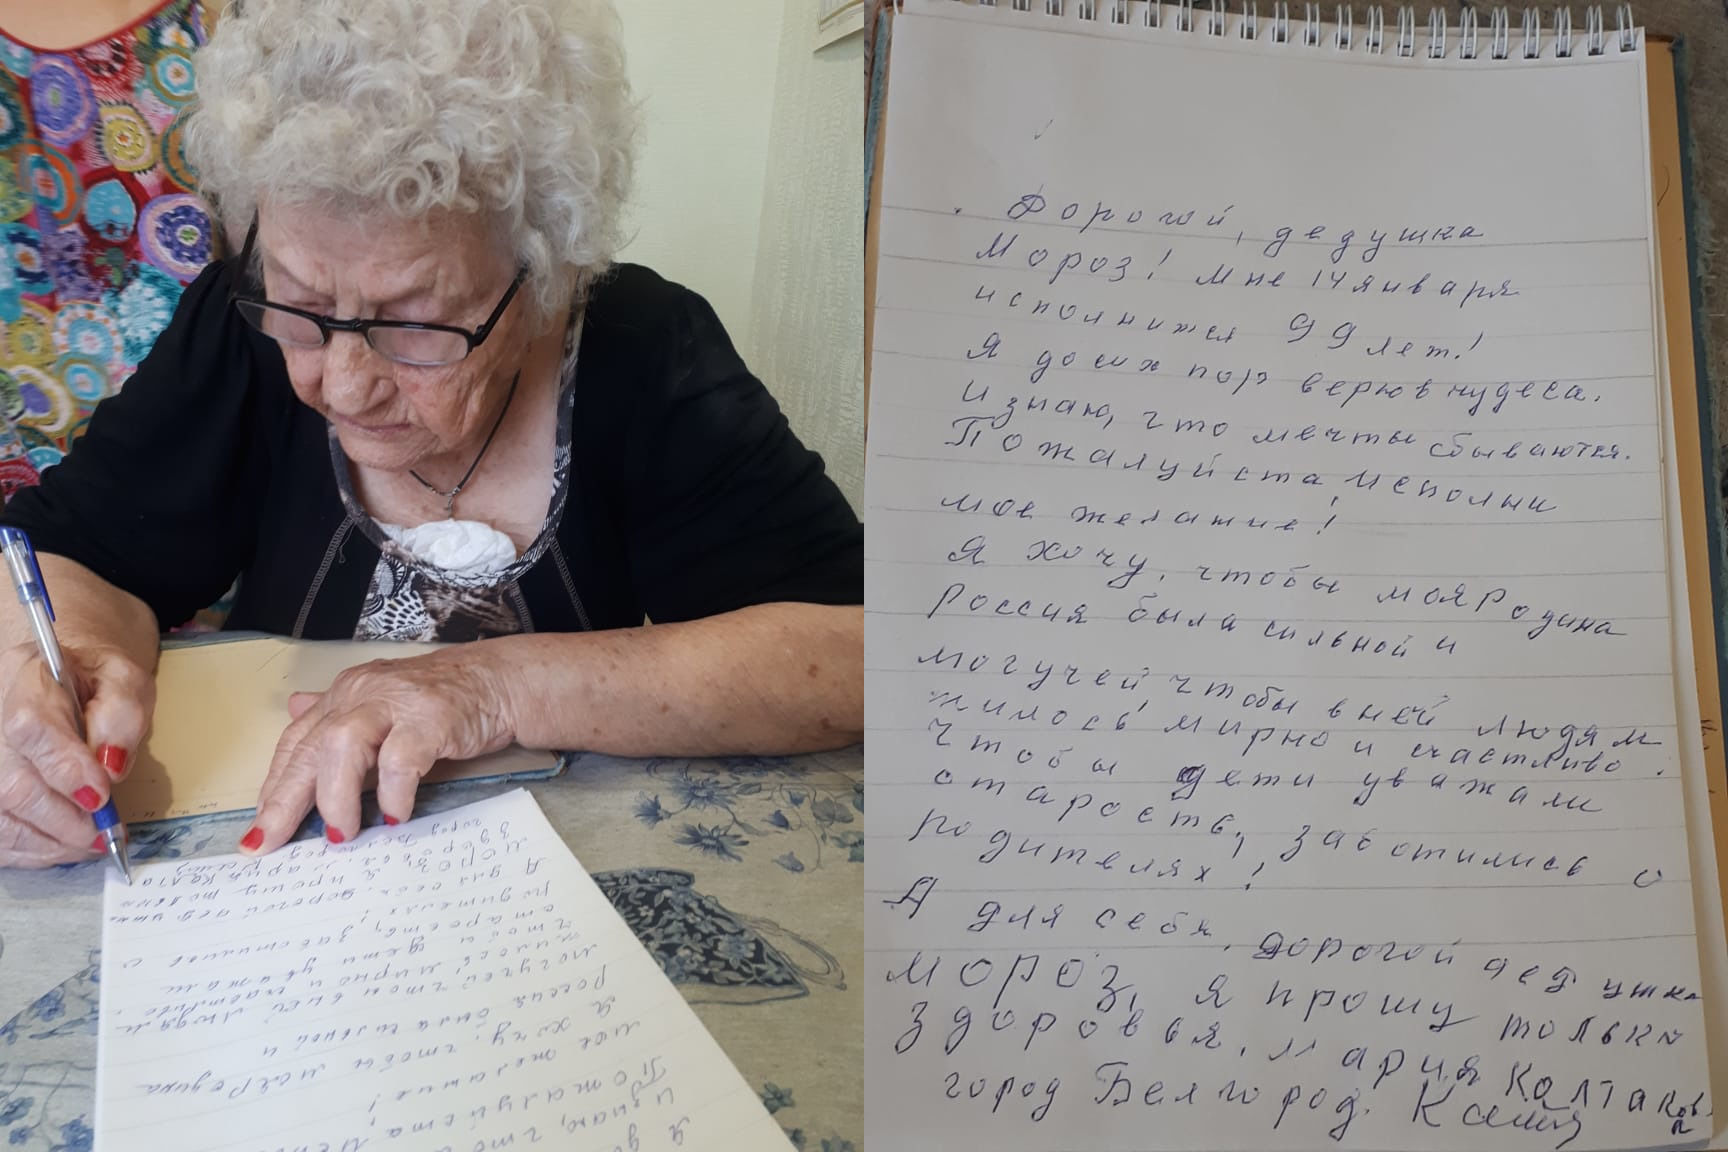 Дорогой, дедушка
Мороз! Мне 14 января
исполнится 99 лет!
Я до сих пор верю в чудеса.
И знаю, что мечты сбываются.
Пожалуйста, исполни
мое желание!
Я хочу, чтобы моя Родина
Россия была сильной и
могучей, чтобы в ней людям
жилось мирно и счастливо.
Чтобы дети уважали
старость, заботились о
родителях!
А для себя, дорогой дедушка
Мороз, я прошу только
здоровья. Мария Колтакова
город Белгород.